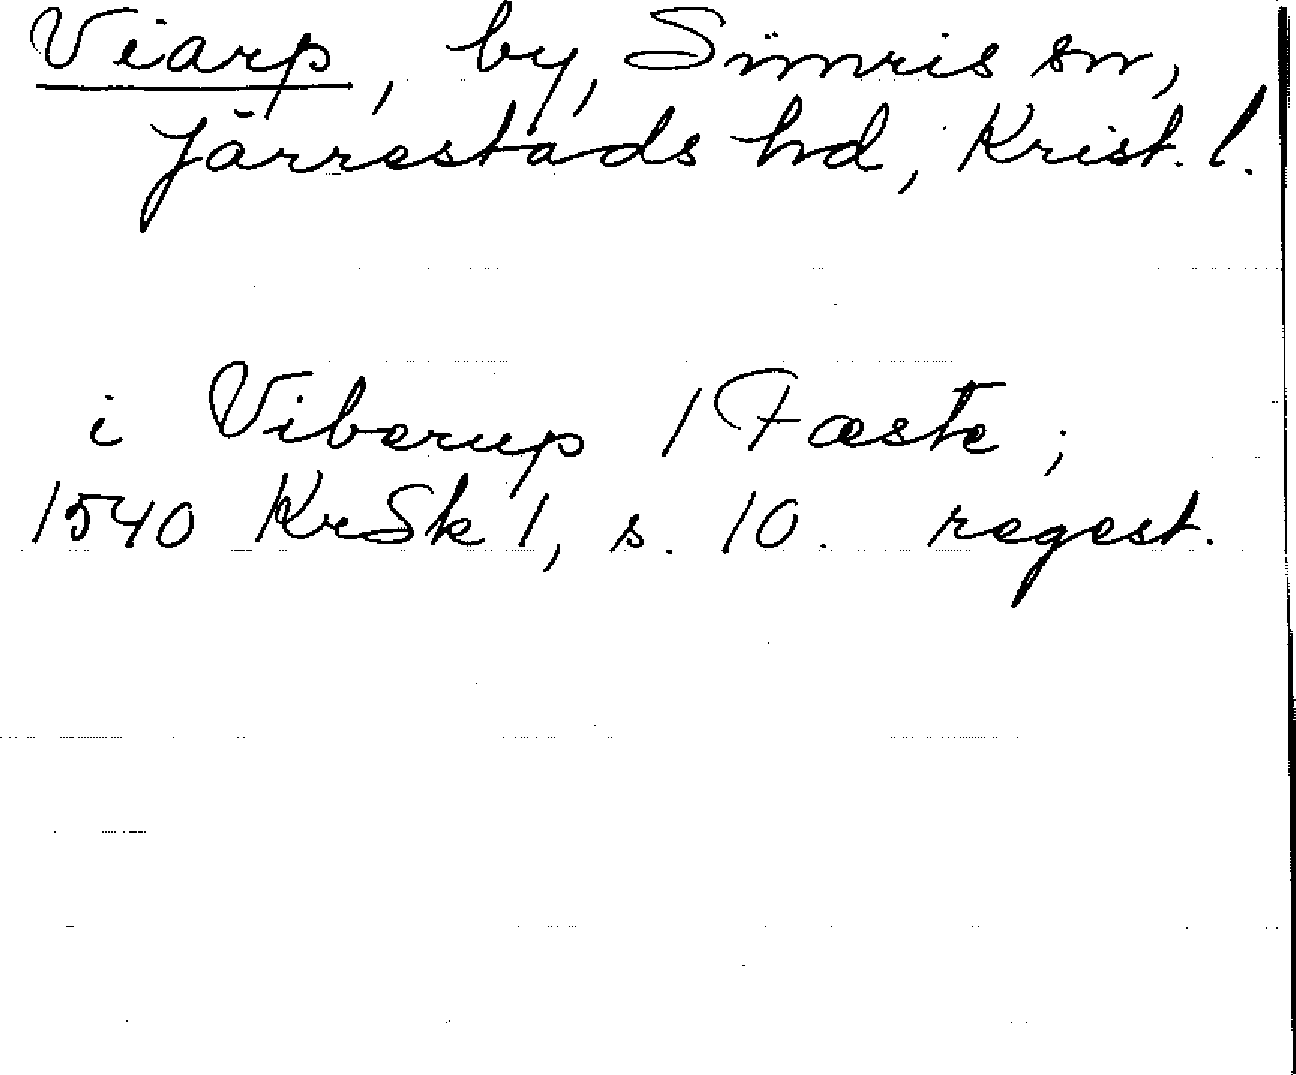 Viarp, by, Simris sn,
Järrestads hd, Krist. l.
i Viberup 1 Fæste;
1540 KrSk 1, s. 10. regest.